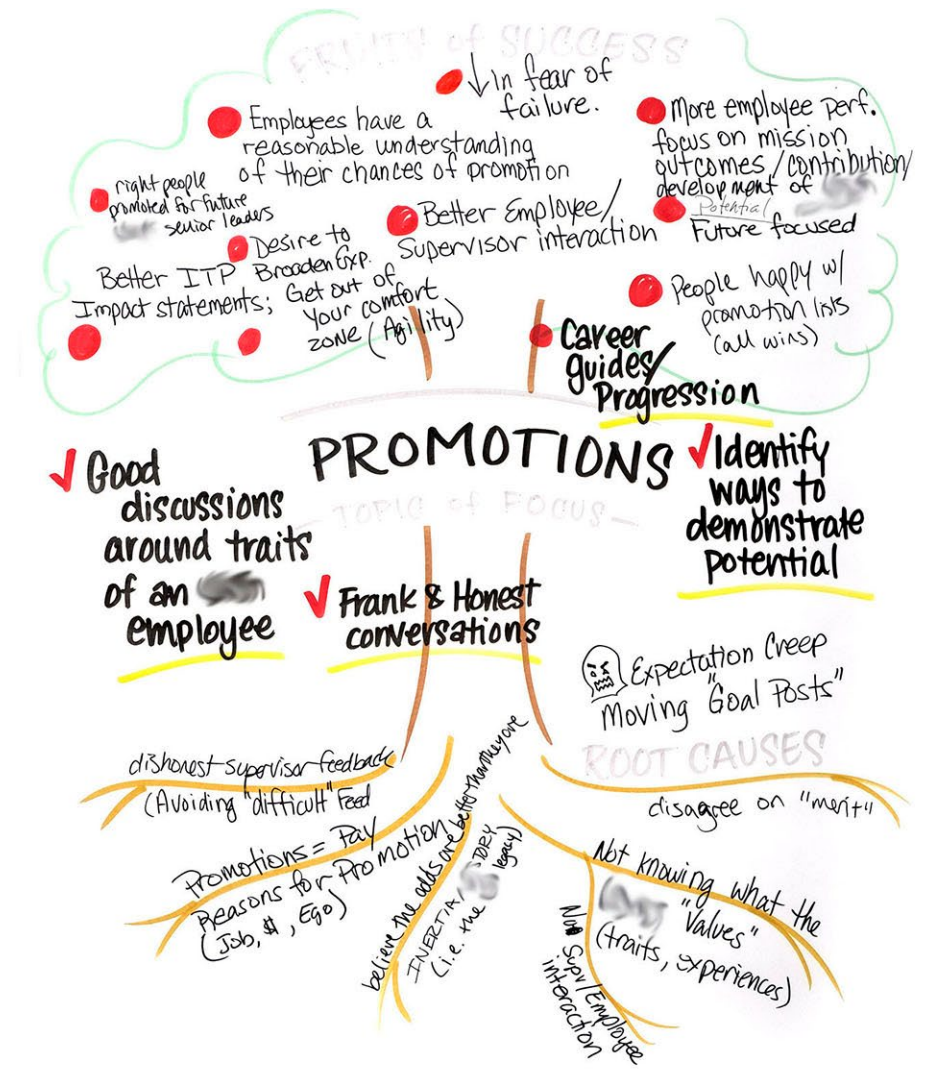 FRUITS of SUCCESS
↓ in fear of
failure.
Employees have a
reasonable understanding
of their chances of promotion
More employee perf.
focus on mission
outcomes/contribution/
development of
Potential
Future focused
right people
promoted for future
senior leaders
Better Employee/
Supervisor interaction
Desire to
Broaden Exp.
Get out of
your comfort
zone (Agility)
Better ITP
Impact statements;
People happy w/
promotion lists
(all wins)
Career
guides/
Progression
PROMOTIONS
- TOPIC of FOCUS -
✓ Good
discussions
around traits
of an
employee
✓ Identify
ways to
demonstrate
potential
✓ Frank & Honest
conversations
Expectation Creep
Moving "Goal Posts"
ROOT CAUSES
dishonest supervisor feedback
(Avoiding "difficult" Feed
disagree on "merit"
Promotions = Pay
Reasons for Promotion
(Job, $, Ego)
believe the odds are better than they are
INERTIA/
STORY
(i.e. the
legacy)
Not knowing what the
"Values"
(traits, experiences)
No Supv/Employee
interaction